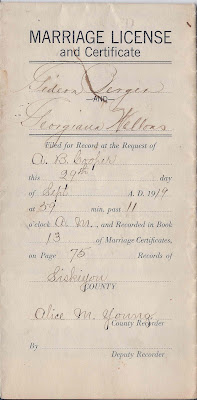 MARRIAGE LICENSE
and Certificate
Gideon Berger
AND
Georgiana Wellons
Filed for Record at the Request of
A. B. Cooper
this 29th day
of Sept A. D. 1919
at 59 min. past 11
o'clock A. M., and Recorded in Book
13 of Marriage Certificates,
on Page 75 Records of
Siskiyou
COUNTY
Alice M. Young
County Recorder
By
Deputy Recorder